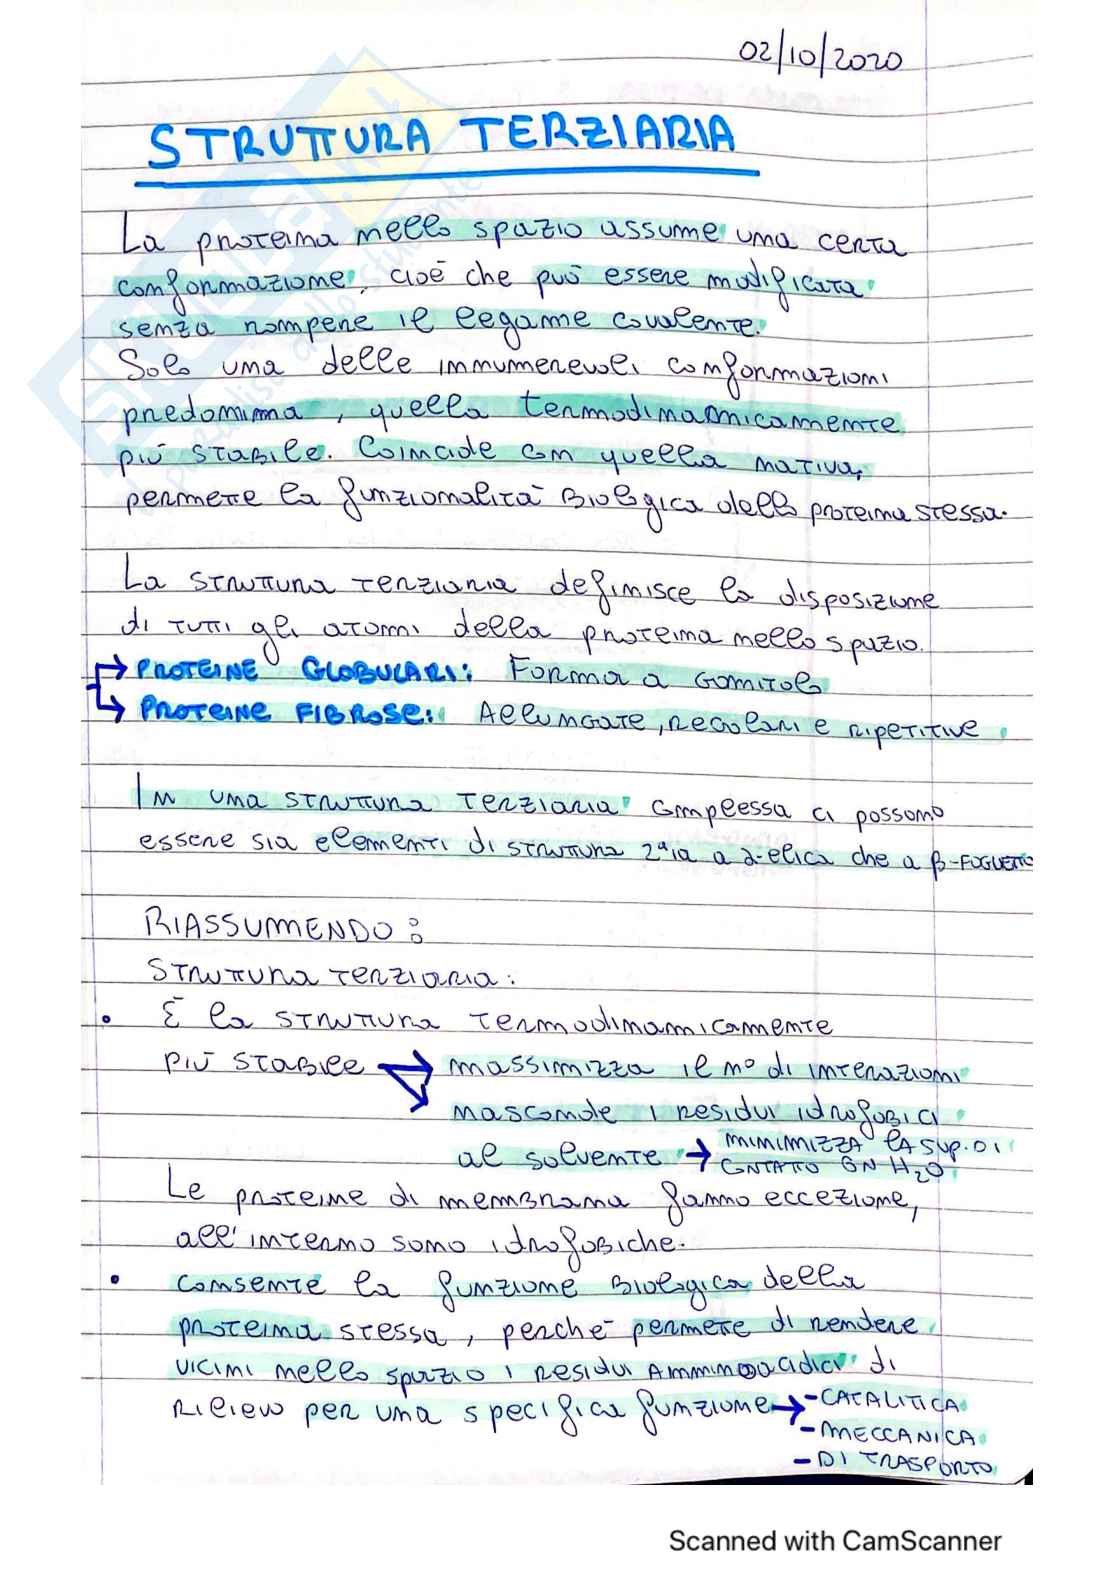 02/10/2020
STRUTTURA TERZIARIA
La proteina nello spazio assume una certa
conformazione, cioè che può essere modificata
senza rompere il legame covalente.
Solo una delle innumerevoli conformazioni
predomina, quella termodinamicamente
più stabile. Coincide con quella nativa,
permette la funzionalità biologica della proteina stessa.
La struttura terziaria definisce la disposizione
di tutti gli atomi della proteina nello spazio.
→ PROTEINE GLOBULARI: Forma a Gomitolo
→ PROTEINE FIBROSE: Allungate, regolari e ripetitive
In una struttura terziaria complessa ci possono
essere sia elementi di struttura 2ªia a α-elica che a β-FOGLIETTO
RIASSUMENDO:
Struttura terziaria:
• È la struttura termodinamicamente
più stabile → massimizza il nº di interazioni
nasconde i residui idrofobici
al solvente → MINIMIZZA LA SUP. DI
CONTATTO CON H₂O
Le proteine di membrana fanno eccezione,
all'interno sono idrofobiche.
• Consente la funzione biologica della
proteina stessa, perché permette di rendere
vicini nello spazio i residui Amminoacidici di
rilievo per una specifica funzione → - CATALITICA
- MECCANICA
- DI TRASPORTO
Scanned with CamScanner